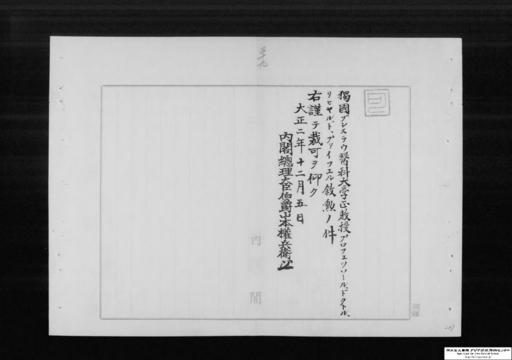 獨國ブレスラウ醫科大学正教授プロフェッソール、ドクトル、
リヒャルト、プァイフェル敍勲ノ件
右謹テ裁可ヲ仰ク
大正二年十二月五日
内閣總理大臣伯爵山本權兵衞
内閣